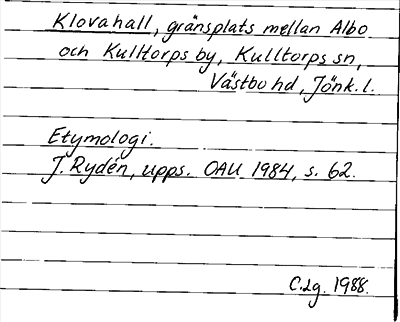 Klovahall, gränsplats mellan Albo
och Kulltorps by, Kulltorps sn,
Västbo hd, Jönk. l.
Etymologi.
J. Rydén, upps. OAU 1984, s. 62.
C.Lg. 1988.